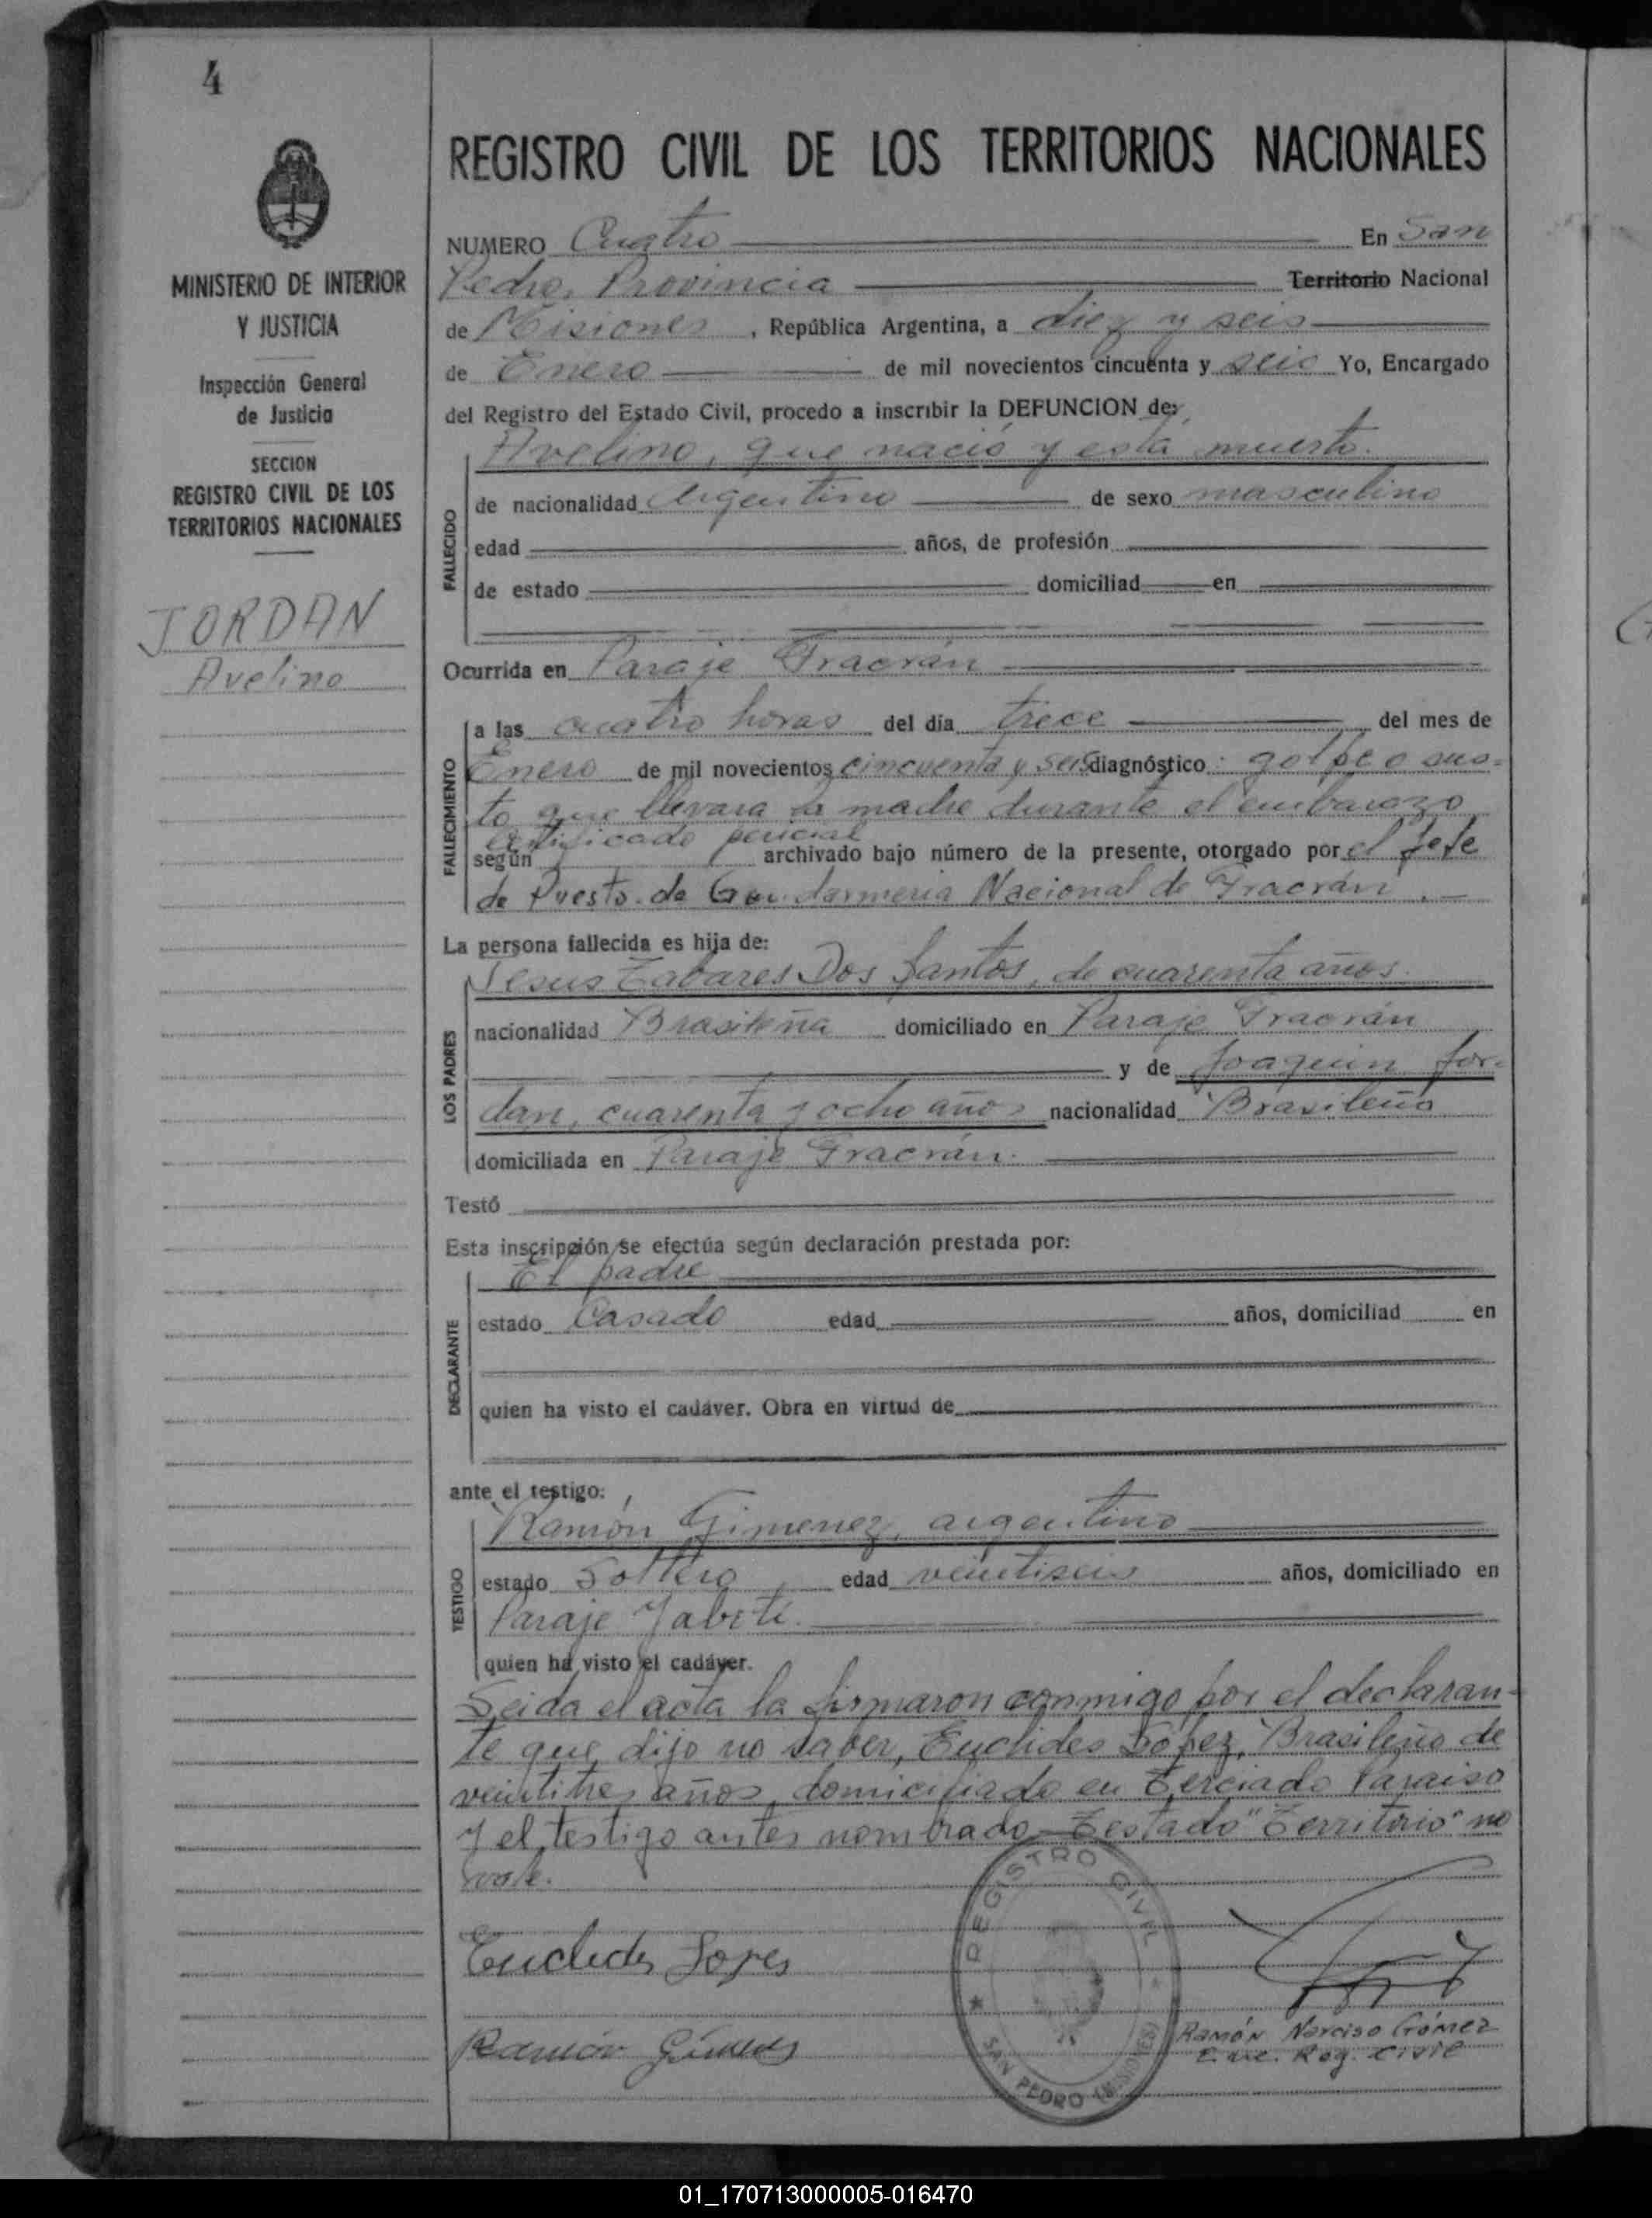 4
REGISTRO CIVIL DE LOS TERRITORIOS NACIONALES
MINISTERIO DE INTERIOR
Y JUSTICIA
Inspección General
de Justicia
SECCION
REGISTRO CIVIL DE LOS
TERRITORIOS NACIONALES
JORDAN
Avelino
NUMERO Cuatro En San
Pedro, Provincia Territorio Nacional
de Misiones, República Argentina, a diez y seis
de Enero de mil novecientos cincuenta y seis Yo, Encargado
del Registro del Estado Civil, procedo a inscribir la DEFUNCION de:
Avelino, que nació y está muerto.
FALLECIDO
de nacionalidad Argentino de sexo masculino
edad años, de profesión
de estado domiciliad en
Ocurrida en Paraje Fracrán
FALLECIMIENTO
a las cuatro horas del día trece del mes de
Enero de mil novecientos cincuenta y seis diagnóstico: golpe o sus-
to que llevara la madre durante el embarazo
según certificado policial archivado bajo número de la presente, otorgado por el Jefe
de Puesto de Gendarmeria Nacional de Fracrán.
La persona fallecida es hija de:
LOS PADRES
Jesus Tabares Dos Santos, de cuarenta años.
nacionalidad Brasileña domiciliado en Paraje Fracrán
y de Joaquin Jor-
dan, cuarenta y ocho años nacionalidad Brasileño
domiciliada en Paraje Fracrán.
Testó
Esta inscripción se efectúa según declaración prestada por:
DECLARANTE
El padre
estado Casado edad años, domiciliad en
quien ha visto el cadáver. Obra en virtud de
ante el testigo:
TESTIGO
Ramón Gimenez, argentino
estado Soltero edad veintiseis años, domiciliado en
Paraje Yaboti.
quien ha visto el cadáver.
Leida el acta la firmaron conmigo por el declaran-
te que dijo no saber, Euclides López, Brasileño de
veintitres años, domiciliado en Terciado Paraiso
y el testigo antes nombrado. Testado "Territorio" no
vale.
Euclides Lopes
Ramón Gimenes
REGISTRO CIVIL
SAN PEDRO (MISIONES)
Ramón Narciso Gómez
Enc. Reg. Civil
01_170713000005-016470